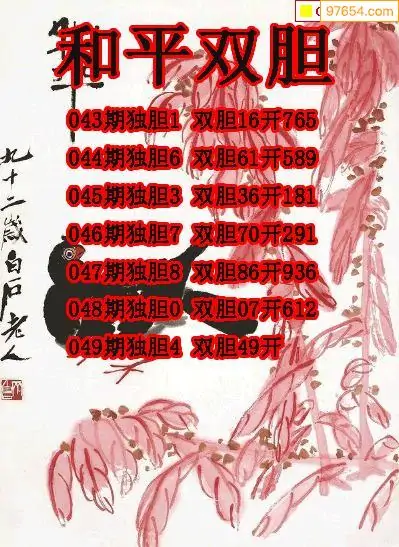 97654.com
和平双胆
043期独胆1 双胆16开765
044期独胆6 双胆61开589
045期独胆3 双胆36开181
046期独胆7 双胆70开291
047期独胆8 双胆86开936
048期独胆0 双胆07开612
049期独胆4 双胆49开
九十二歲白石老人